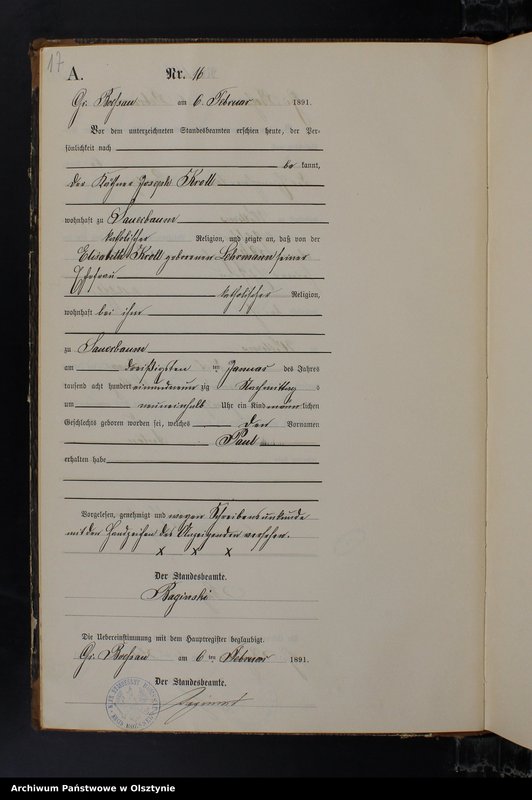 17
A.
Nr. 16
Gr. Boessau am 6. Februar 1891.
Vor dem unterzeichneten Standesbeamten erschien heute, der Per-
sönlichkeit nach
be kannt,
der Käthner Joseph Kroll
wohnhaft zu Sauerbaum
katholischer Religion, und zeigte an, daß von der
Elisabeth Kroll geborenen Lehrmann seiner
Ehefrau
katholischer Religion,
wohnhaft bei ihm
zu Sauerbaum
am dreißigsten ten Januar des Jahres
tausend acht hundert einundneun zig Nachmittag s
um neuneinhalb Uhr ein Kind männlichen
Geschlechts geboren worden sei, welches den Vornamen
Paul
erhalten habe
Vorgelesen, genehmigt und wegen Schreibensunkunde
mit den Handzeichen des Anzeigenden versehen.
x x x
Der Standesbeamte.
Baginski
Die Uebereinstimmung mit dem Hauptregister beglaubigt.
Gr. Boessau am 6 ten Februar 1891.
Der Standesbeamte.
Archiwum Państwowe w Olsztynie